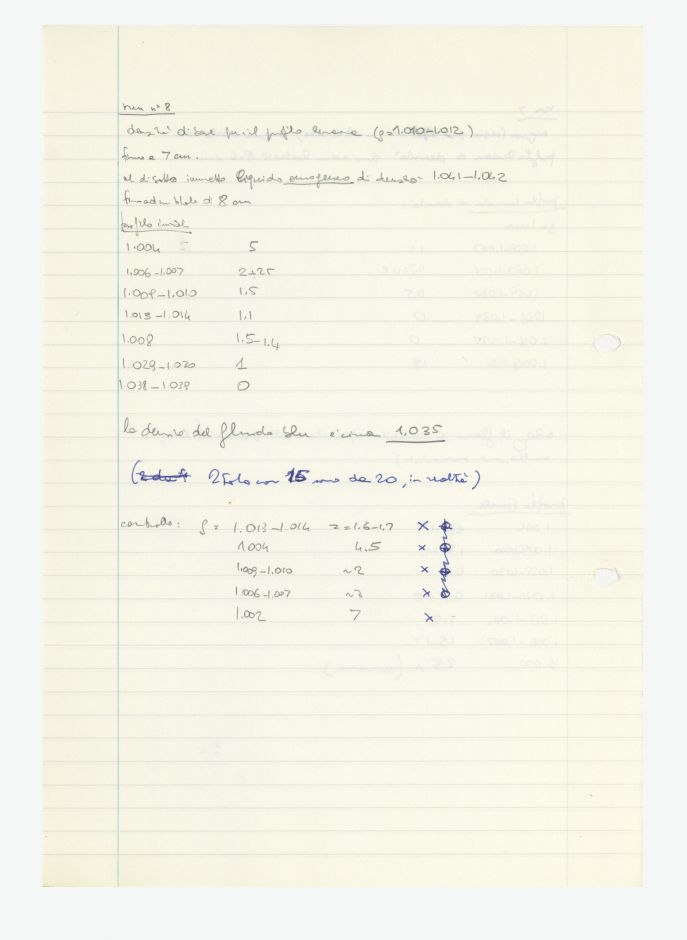 run n° 8
densità di base per il profilo lineare (ρ=1.010-1.012)
fino a 7 cm.
al di sotto immetto liquido omogeneo di densità 1.041-1.042
fino ad un totale di 8 cm
profilo iniziale
1.004 5
1.006-1.007 2+25
1.009-1.010 1.5
1.013-1.014 1.1
1.008 1.5-1.4
1.029-1.030 1
1.038-1.039 0
la densità del fluido blu è circa 1,035
( con 15 da 20, in realtà)
controllo: ρ = 1.013-1.014 z=1.6-1.7 ×
1.004 4.5 ×
1.009-1.010 ~2 ×
1.006-1.007 ~3 ×
1.002 7 ×